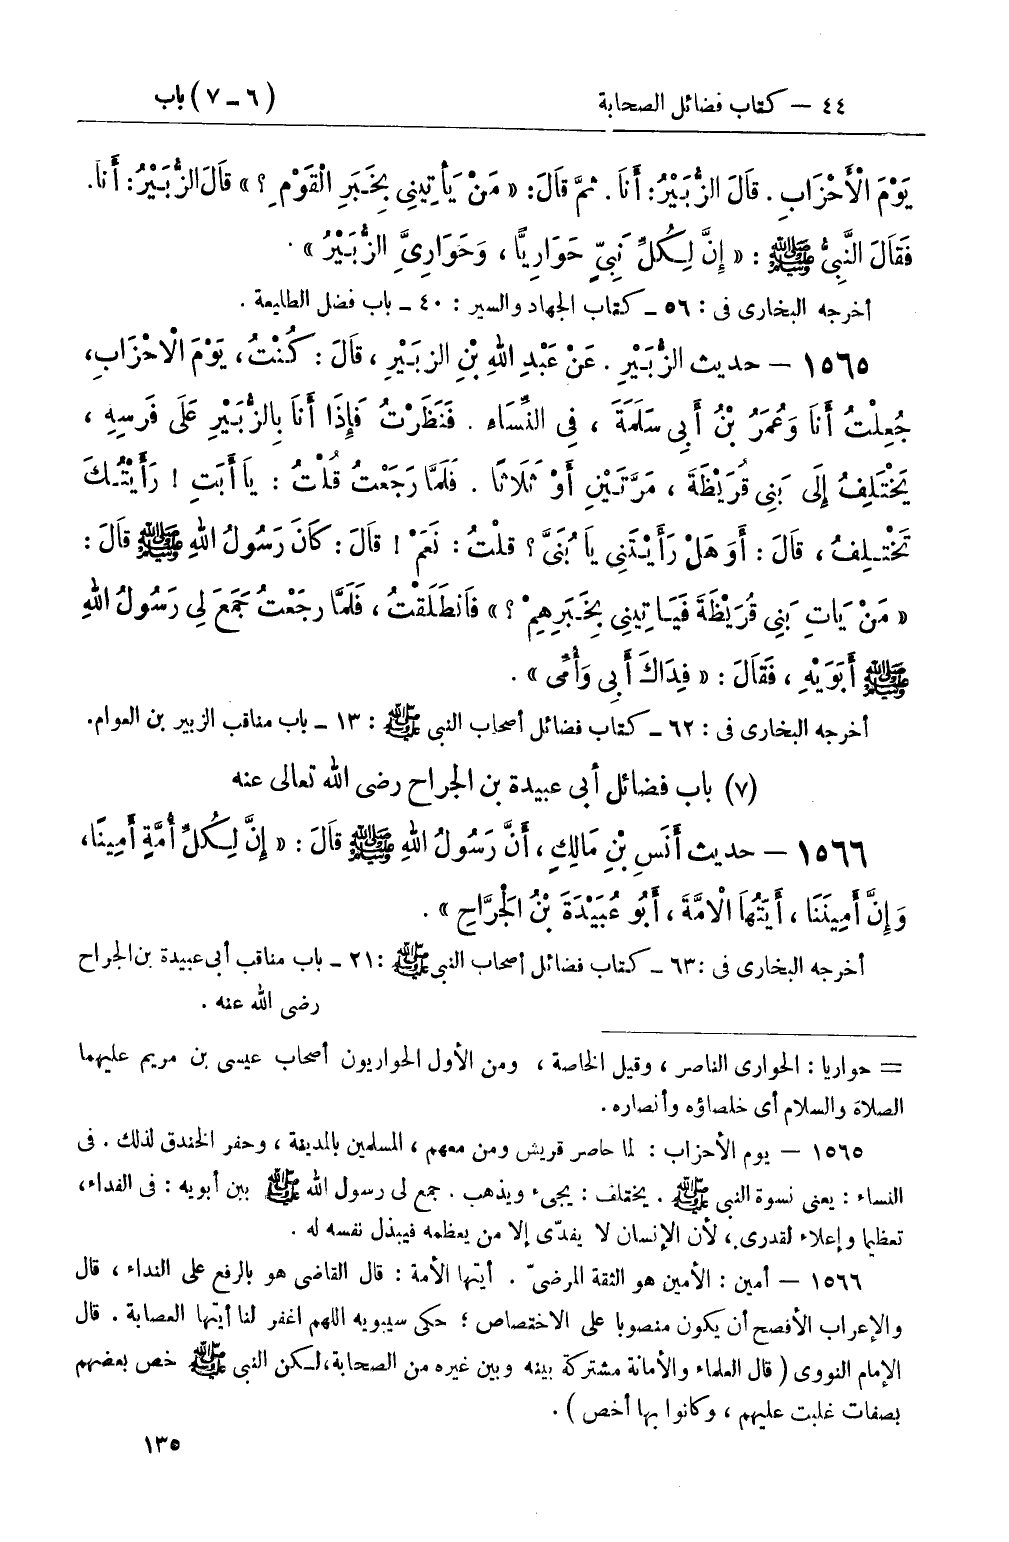 ٤٤ — كتاب فضائل الصحابة (٦ ــ ٧) باب
يَوْمَ الْأَحْزَابِ . قَالَ الزُّبَيْرُ: أَنَا . ثمَّ قَالَ: « مَنْ يَأْتِينِى بِخَبَرِ الْقَوْمِ ؟ » قَالَ الزُّبَيْرُ: أَنَا.
فَقَالَ النَّبِىُّ ﷺ : « إِنَّ لِكُلِّ نَبِىٍّ حَوَارِيًّا ، وَحَوَارِىَّ الزُّبَيْرُ » .
أخرجه البخارى فى : ٥٦ ــ كتاب الجهاد والسير : ٤٠ ــ باب فضل الطليعة .
١٥٦٥ — حديث الزُّبَيْرِ . عَنْ عَبْدِ اللهِ بْنِ الزبَيْرِ ، قَالَ : كُنْتُ، يَوْمَ الْاحْزَابِ،
جُعِلْتُ أَنَا وَعُمَرُ بْنُ أَبِى سَلَمَةَ ، فِى النِّسَاءِ . فَنَظَرْتُ فَإِذَا أَنَا بِالزُّبَيْرِ عَلَى فَرَسِهِ ،
يَخْتَلِفُ إِلَى بَنِى قُرَيْظَةَ ، مَرَّتَيْنِ أَوْ ثَلَاثًا . فَلَمَّا رَجَعْتُ قُلْتُ : يَا أَبَتِ ! رَأَيْتُكَ
تَخْتَلِفُ ، قَالَ : أَوَ هَلْ رَأَيْتَنِى يَا بُنَىَّ ؟ قلْتُ : نَعَمْ ! قَالَ : كَانَ رَسُولُ اللهِ ﷺ قَالَ :
« مَنْ يَاتِ بَنِى قُرَيْظَةَ فَيَاتِينِى بِخَبَرِهِمْ ؟ » فَانْطَلَقْتُ ، فَلَمَّا رجَعْتُ جَمَعَ لِى رَسُولُ اللهِ
ﷺ أَبَوَيْهِ ، فَقَالَ : « فِدَاكَ أَبِى وَأُمِّى » .
أخرجه البخارى فى : ٦٢ ــ كتاب فضائل أصحاب النبى ﷺ : ١٣ ــ باب مناقب الزبير بن العوام.
(٧) باب فضائل أبى عبيدة بن الجراح رضى الله تعالى عنه
١٥٦٦ — حديث أَنَسِ بْنِ مَالِكٍ ، أَنَّ رَسُولُ اللهِ ﷺ قَالَ : « إِنَّ لِكُلِّ أُمَّةٍ أَمِينًا،
وَإِنَّ أَمِينَنَا ، أَيَّتُهَا الْامَّةَ ، أَبُو عُبَيْدَةَ بْنُ الْجَرَّاحِ » .
أخرجه البخارى فى : ٦٣ ــ كتاب فضائل أصحاب النبى ﷺ : ٢١ ــ باب مناقب أبى عبيدة بن الجراح
رضى الله عنه .
= حواريا : الحوارى الناصر ، وقيل الخاصة ، ومن الأول الحواريون أصحاب عيسى بن مريم عليهما
الصلاة والسلام أى خلصاؤه وأنصاره .
١٥٦٥ — يوم الأحزاب : لما حاصر قريش ومن معهم ، المسلمين بالمدينة ، وحفر الخندق لذلك . فى
النساء : يعنى نسوة النبى ﷺ . يختلف : يجىء ويذهب . جمع لى رسول الله ﷺ بين أبويه : فى الفداء،
تعظيما وإعلاء لقدرى ، لأن الإنسان لا يفدّى إلا من يعظمه فيبذل نفسه له .
١٥٦٦ — أمين : الأمين هو الثقة المرضىّ . أيتها الأمة : قال القاضى هو بالرفع على النداء ، قال
والإعراب الأفصح أن يكون منصوبا على الاختصاص ؛ حكى سيبويه اللهم اغفر لنا أيتها العصابة . قال
الإمام النووى ( قال العلماء والأمانة مشتركة بينه وبين غيره من الصحابة، لكن النبى ﷺ خص بعضهم
بصفات غلبت عليهم ، وكانوا بها أخص ) .
١٣٥